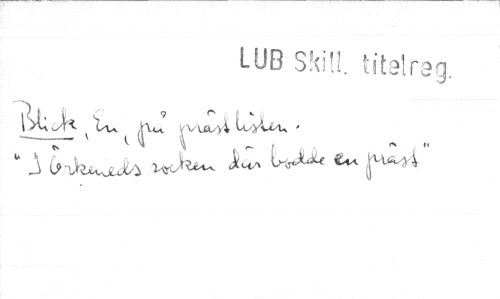 LUB Skill. titelreg.
Blick, En, på prästlisten.
"I Örkeneds socken där bodde en präst"